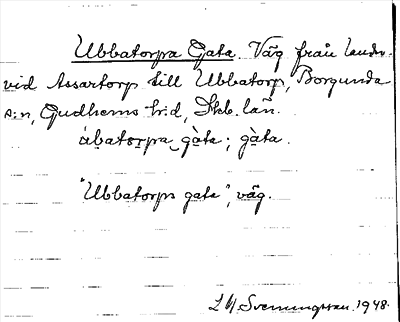 Ubbatorpa Gata. Väg från landsv.
vid Assartorp till Ubbatorp, Borgunda
s:n, Gudhems h:d, Skb. län.
ábatorpa gàta; gàta.
"Ubbatorps gata", väg.
Svenungsson. 1948.